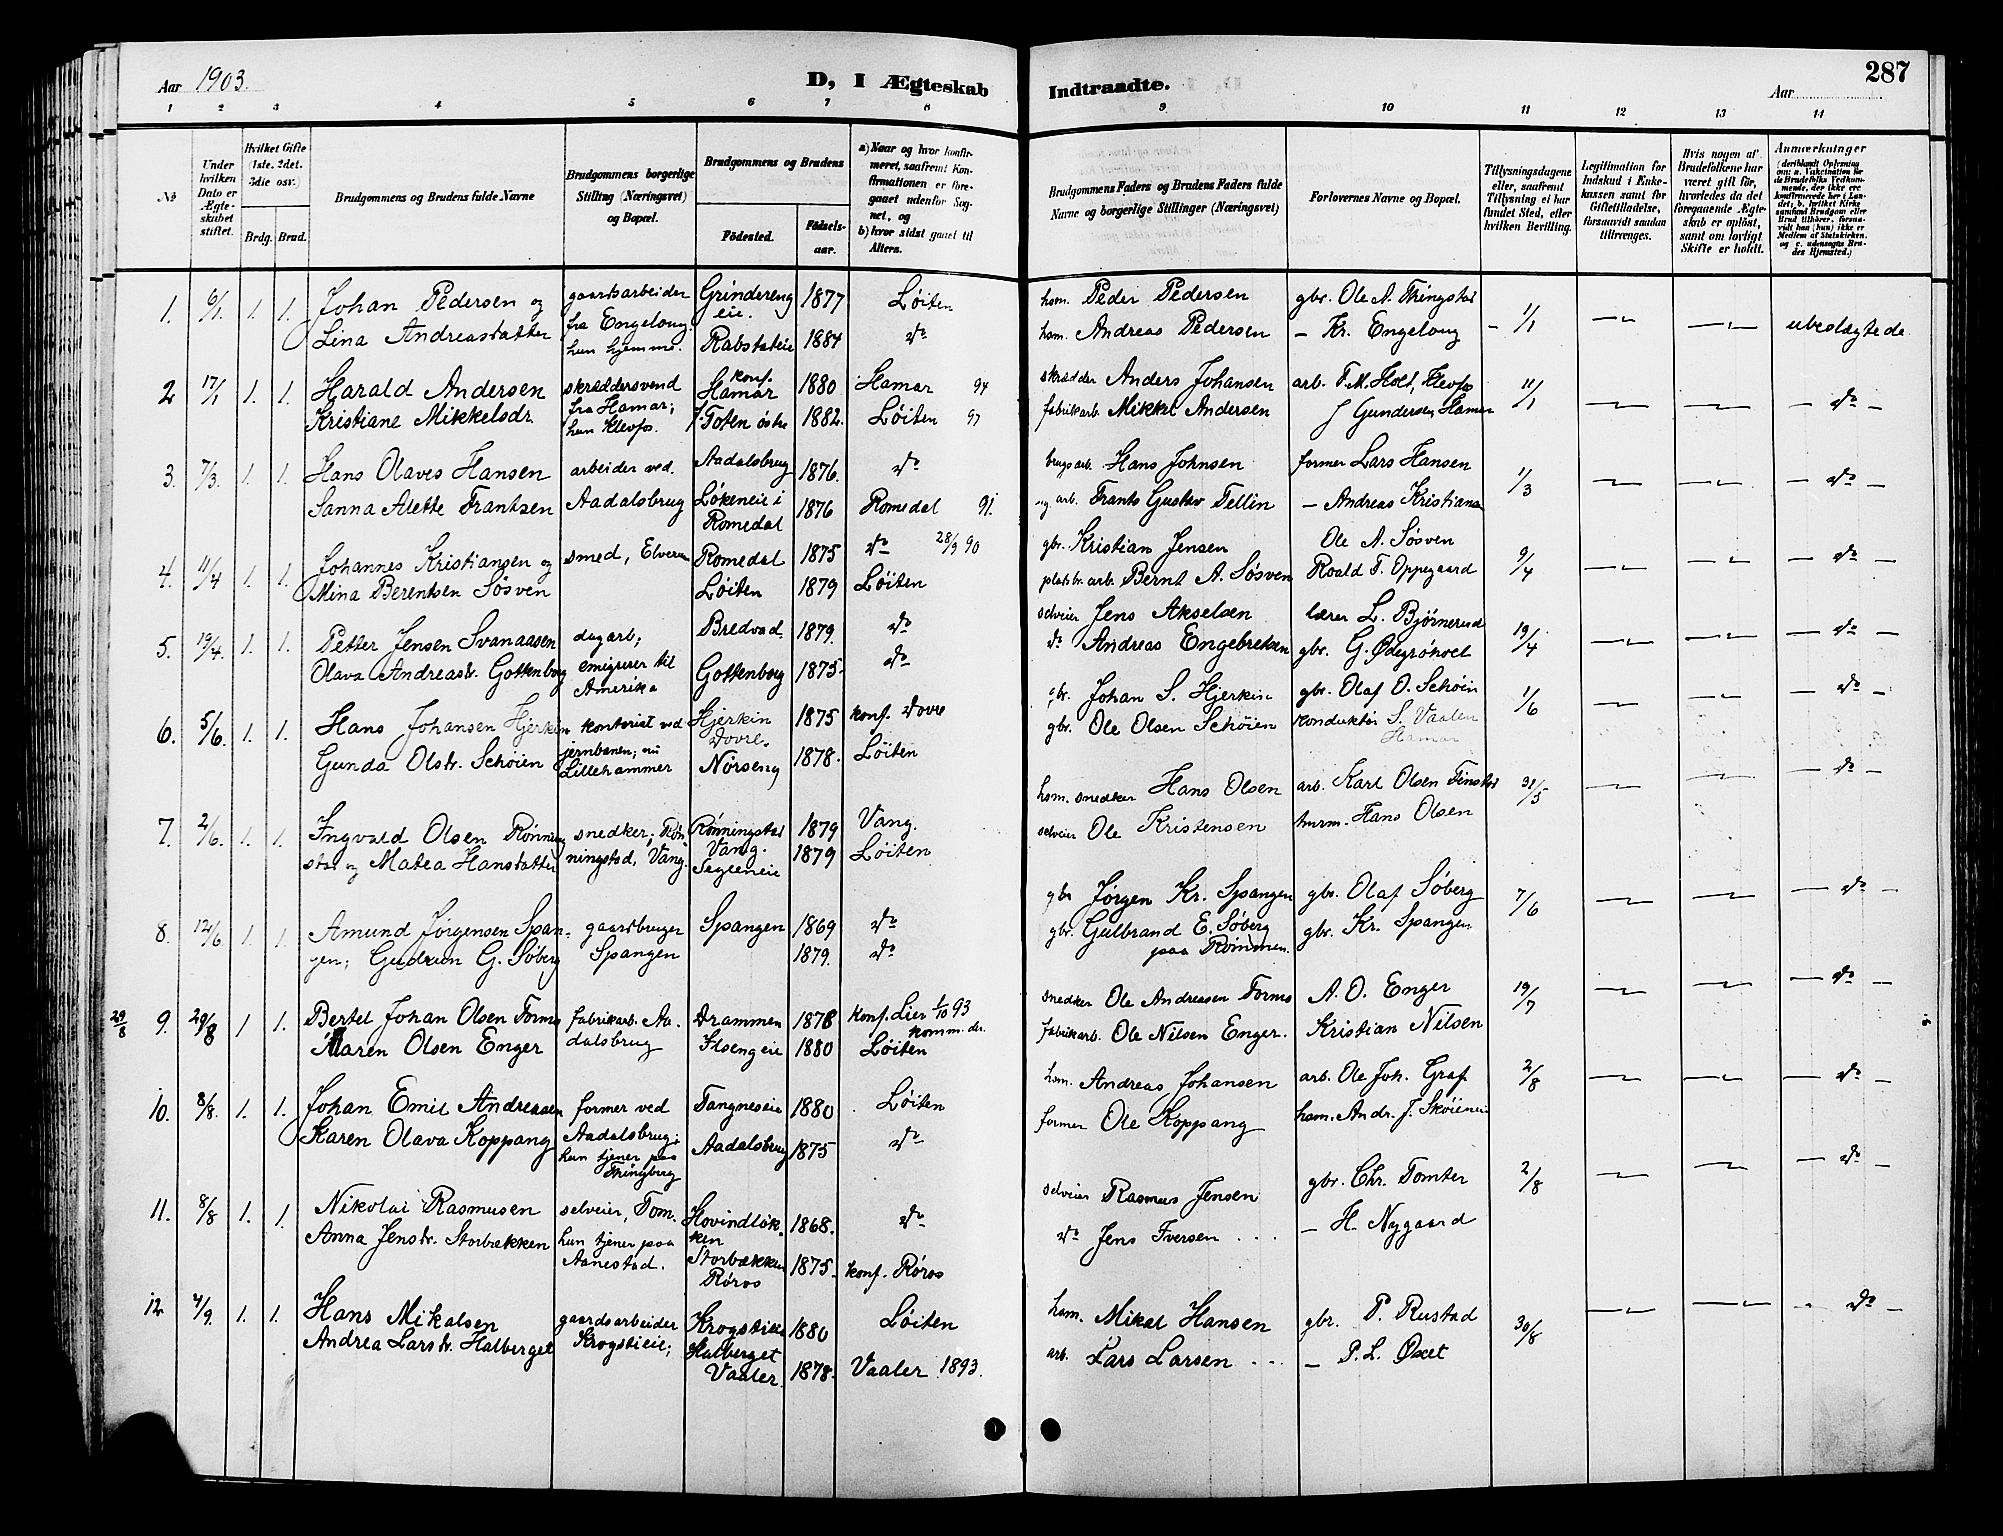 Aar 1903.
D, I Ægteskab Indtraadte.
Aar
287
1 2 3 4 5 6 7 8 9 10 11 12 13 14
No
Under hvilken Dato er Ægteskabet stiftet.
Hvilket Gifte (1ste, 2det, 3die osv.)
Brdg. Brud.
Brudgommens og Brudens fulde Navne
Brudgommens borgerlige Stilling (Næringsvei) og Bopæl.
Brudgommens og Brudens
Fødested.
Fødselsaar.
a) Naar og hvor konfirmeret, saafremt Konfirmationen er foregaaet udenfor Sognet, og
b) hvor sidst gaaet til Alters.
Brudgommens Faders og Brudens Faders fulde Navne og borgerlige Stillinger (Næringsvei)
Forlovernes Navne og Bopæl.
Tillysningsdagene eller, saafremt Tillysning ei har fundet Sted, efter hvilken Bevilling.
Legitimation for Indskud i Enkekassen samt for Giftetilladelse, forsaavidt saadan tiltrænges.
Hvis nogen af Brudefolkene har været gift før, hvorledes da det foregaaende Ægteskab er opløst, samt om lovligt Skifte er holdt.
Anmærkninger
1. 6/1 1. 1. Johan Pedersen og gaardsarbeider fra Engeloug hun hjemme. Grindereng eie. 1877 Løiten hsm. Peder Pedersen gbr. Ole A. Thingstad 1/1 ubeslægtede
Lina Andreasdatter Rabstadeie 1884 do hsm. Andreas Pedersen – Kr. Engeloug
2 17/1 1. 1. Harald Andersen skræddersvend fra Hamar; hun Klevfos. konf. Hamar 1880 Hamar 94 skrædder Anders Johansen arb. T. M. Holt, Klevfos 11/1 – do –
Kristiane Mikkelsdr. Toten østre 1882. Løiten 97 fabrikarb. Mikkel Andersen J Gundersen, Hamar
3. 7/3. 1. 1. Hans Olaves Hansen arbeider ved Aadalsbrug Aadalsbrug 1876. do brugsarb. Hans Johnsen former Lars Hansen 1/3 – do –
Sanna Alette Frantzen Løkeneie i Romedal 1876 Romedal 91. arb. Frants Gustav Tellin – Andreas Kristiansen
4. 11/4 1. 1. Johannes Kristiansen og smed, Elverum Romedal 1875 do 28/9 90 gbr. Kristian Jensen Ole A. Søsven 9/4 – do –
Mina Berentsen Søsven Løiten 1879 Løiten arb. Bernt A. Søsven Roald T. Oppegaard
5. 19/4. 1. 1. Petter Jensen Svenaasen dagarb; emigrerer til Amerika Bredvad. 1879. do selveier Jens Akselsen lærer L. Bjørnerud 19/4 – do –
Olava Andreasdr. Gottenborg Gottenborg 1875. do do Andreas Engebretsen gbr. G. Ødegrøholt
6. 5/6. 1. 1. Hans Johansen Hjerkin kontorist ved jernbanen; nu Lillehammer Hjerkin Dovre. 1875 konf. Dovre gbr. Johan S. Hjerkin gbr. Olaf O. Schøien 1/6 – do –
Gunda Olsdr. Schøien Nørseng 1878. Løiten gbr. Ole Olsen Schøien konduktør S. Vaalen Hamar
7. 2/6. 1. 1. Ingvald Olsen Rønningstad og Matea Hansdatter snedker; Rønningstad, Vang. Rønningstad Vang. 1879 Vang. hsm. snedker Hans Olsen arb. Karl Olsen Finstad 31/5 – do
1879 Løiten selveier Ole Kristensen Hans Olsen
8. 12/6. 1. 1. Amund Jørgensen Spangen; Gudrun G. Søberg gaardbruger Spangen Spangen 1869 do gbr Jørgen Kr. Spangen gbr. Olaf Søberg 7/6 – do –
1879. do gbr. Gulbrand E. Søberg paa Rømmen. gbr. Kr. Spangen
29/8 9. 29/8 1 1. Bertel Johan Olsen Torms fabrikarb. Aadalsbrug Drammen 1878 konf. Lier 1/10 93 komm. dr. snedker Ole Andreasen Torms A. O. Enger 19/7 – do –
Maren Olsen Enger Ilsengeie 1880 Løiten fabrikarb. Ole Nilsen Enger. Kristian Nilsen
10. 8/8. 1. 1. Johan Emil Andreasen former ved Aadalsbrug; hun tjener paa Thingberg Tangneseie 1880 Løiten hsm. Andreas Johansen arb. Ole Joh. Graf 2/8 – do –
Karen Olava Koppang Aadalsbrug 1875 do former Ole Koppang hsm. Andr. J. Skøieneie
11. 8/8 1. 1. Nikolai Rasmusen selveier, Tom. hun tjener paa Aanestad. Hovindløkken 1868. do selveier Rasmus Jensen gbr. Chr. Tomter 2/8 – do –
Anna Jensdr. Storbækken Storbækken Røros 1875. konf. Røros do Jens Iversen – H. Nygaard
12 4/9. 1. 1. Hans Mikalsen gaardsarbeider Krogstieie; Krogstieie 1880 Løiten hsm. Mikal Hansen gbr. P. Rustad 30/8 – do –
Andrea Larsdr. Halberget Halberget Vaaler. 1878. Vaaler 1893. arb. Lars Larsen – P. L. Øxet